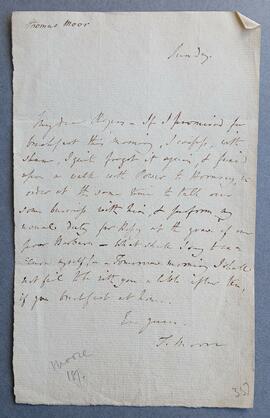 Thomas Moor
Sunday.
My dear Rogers – If I promised for
breakfast this morning, I confess, with
shame, I quite forgot it again, & fixed
upon a walk with Power to Hornsey, in
order at the same time to talk over
some business with him, & perform my
usual duty for Bessy, at the grave of our
poor Barbara – What shall I say to
myself – Tomorrow morning I shall
not fail to be with you a little after ten,
if you breakfast at home.
Ever yours
T. Moore
Moore